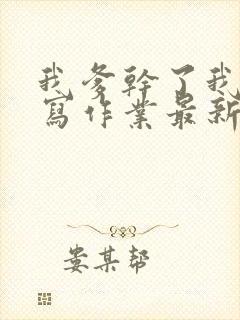 我爹幹了我
寫作業最新
娄某帮